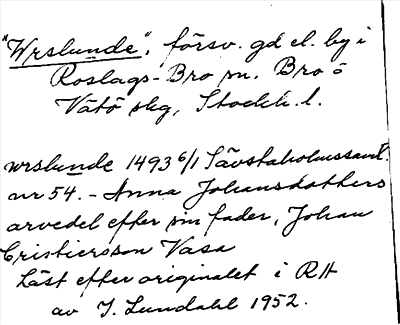 "Wrslunde", försv. gd el. by i
Roslags-Bro sn. Bro o
Vätö skg, Stockh. l.
wrslunde 1493 6/1 Sävstaholmssaml.
nr 54. - Anna Johansdotters
arvedel efter sin fader, Johan
Cristiersson Vasa
Läst efter originalet i RA
av I. Lundahl 1952.